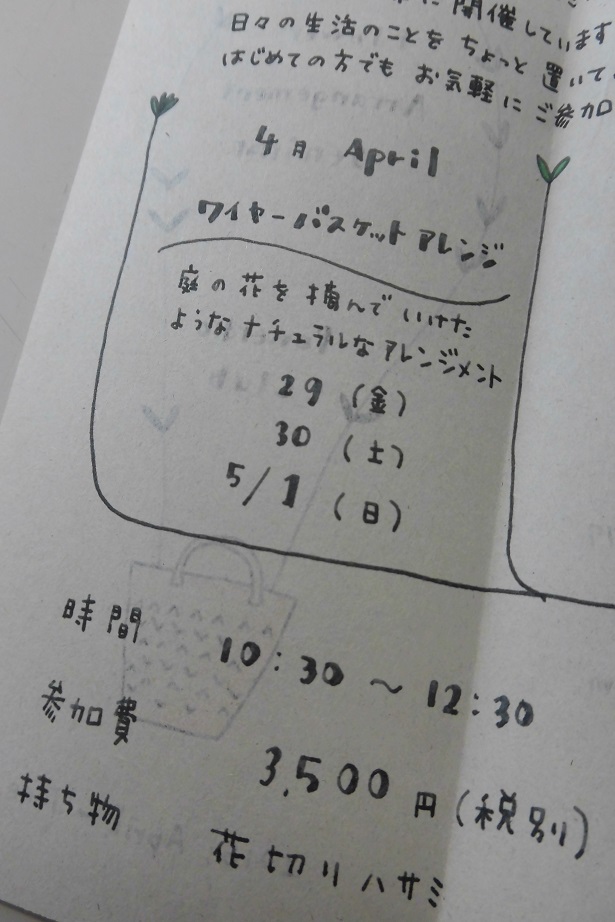 開催しています
日々の生活のことを ちょっと 置いて
はじめての方でも お気軽に ご参加
4月 April
ワイヤーバスケットアレンジ
庭の花を摘んでいけた
ようなナチュラルなアレンジメント
29 (金)
30 (土)
5/1 (日)
時間 10:30 ~ 12:30
参加費 3,500円(税別)
持ち物 花切りハサミ